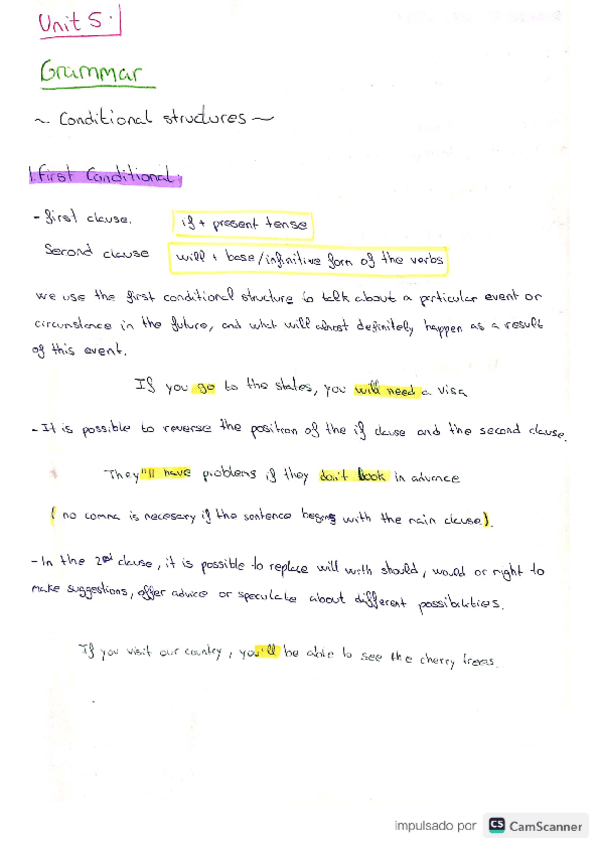 Unit 5.
Grammar
~ Conditional structures ~
1. First Conditional.
- First clause. if + present tense
Second clause will + base/infinitive form of the verbs
we use the first conditional structure to talk about a prticular event or
circunstance in the future, and what will almost definitely happen as a result
of this event.
If you go to the states, you will need a visa
- It is possible to reverse the position of the if clause and the second clause.
They"ll have problems if they don't book in advance
( no comma is necesary if the sentence begins with the main clause).
- In the 2nd clause, it is possible to replace will with should, would or might to
make suggestions, offer advice or speculate about different possibilities.
If you visit our country, you'll be able to see the cherry trees.
impulsado por CS CamScanner